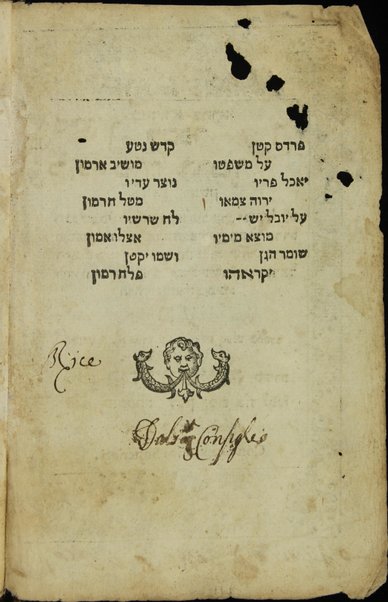 פרדס קטן קדש נטע
על משפטו מושיב ארמון
יאכל פריו נוצר עדיו
ירוה צמאו מטל חרמון
על יובל יש-- לח שרשיו
מוצא מימיו אצלו אמון
שומר הגן ושמו יקטן
יקראהו פלח רמון
Consiglio